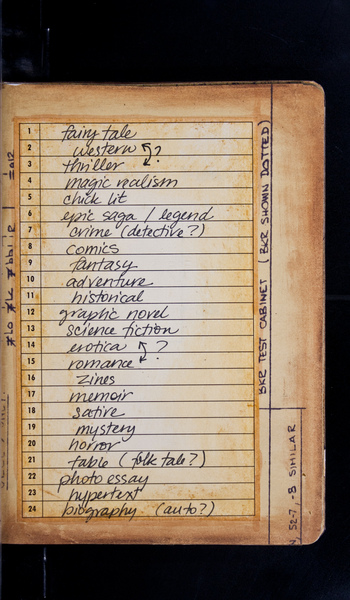 1 fairy tale
2 western ?
3 thriller
4 magic realism
5 chick lit
6 epic saga / legend
7 crime (detective?)
8 comics
9 fantasy
10 adventure
11 historical
12 graphic novel
13 science fiction
14 erotica ?
15 romance
16 zines
17 memoir
18 satire
19 mystery
20 horror
21 fable (folk tale?)
22 photo essay
23 hypertext
24 biography (auto?)
BKR TEST CABINET (BKR SHOWN DOTTED)
52-7, -8 SIMILAR